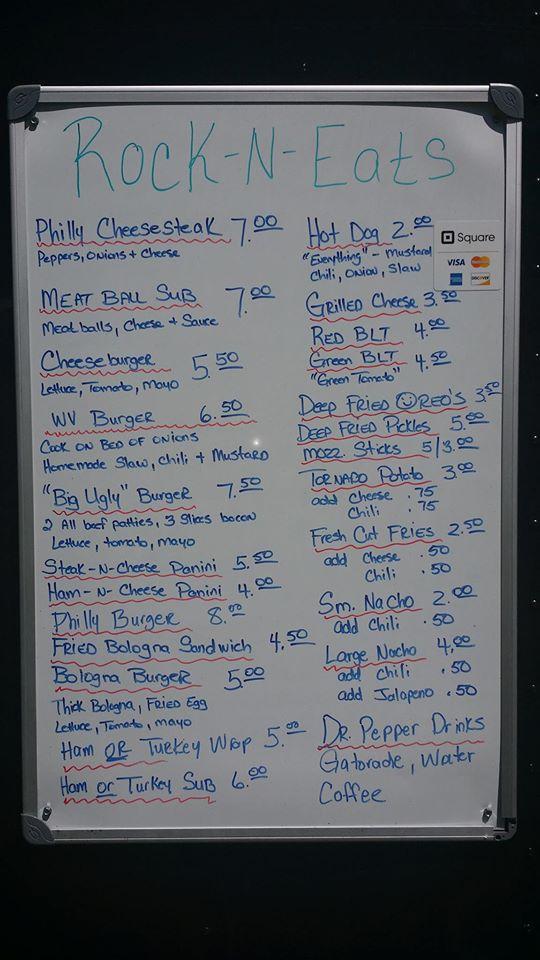 ROCK-N-EatS
Philly Cheesesteak 7.00
Peppers, Onions + Cheese
MEAT BALL SUB 7.00
Meatballs, Cheese + Sauce
Cheeseburger 5.50
Lettuce, Tomato, Mayo
WV BURGER 6.50
COOK ON BED OF ONIONS
Homemade Slaw, Chili + Mustard
"Big Ugly" Burger 7.50
2 All beef patties, 3 Slices bacon
Lettuce, tomato, mayo
Steak-N-Cheese Panini 5.50
Ham-N-Cheese Panini 4.00
Philly Burger 8.00
FRIED Bologna Sandwich 4.50
Bologna Burger 5.00
Thick Bologna, FRIED Egg
Lettuce, Tomato, mayo
Ham OR Turkey Wrap 5.00
Ham or Turkey SUB 6.00
Hot Dog 2.00
"Everything" - Mustard
Chili, Onion, Slaw
Square
VISA
DISCOVER
GRILLED Cheese 3.50
RED BLT 4.00
Green BLT 4.50
"Green Tomato"
DEEP FRIED OREO'S 3.50
DEEP FRIED Pickles 5.00
MOZZ. Sticks 5/3.00
TORNADO Potato 3.00
add Cheese .75
Chili .75
Fresh Cut FRIES 2.50
add Cheese .50
Chili .50
Sm. Nacho 2.00
add Chili .50
Large Nacho 4.00
add Chili .50
add Jalapeno .50
DR. Pepper Drinks
Gatorade, Water
Coffee